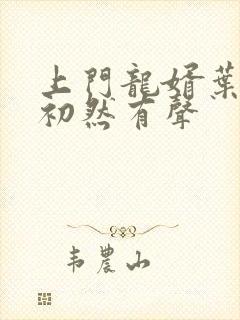 上門龍婿葉
初然有聲
韦農山